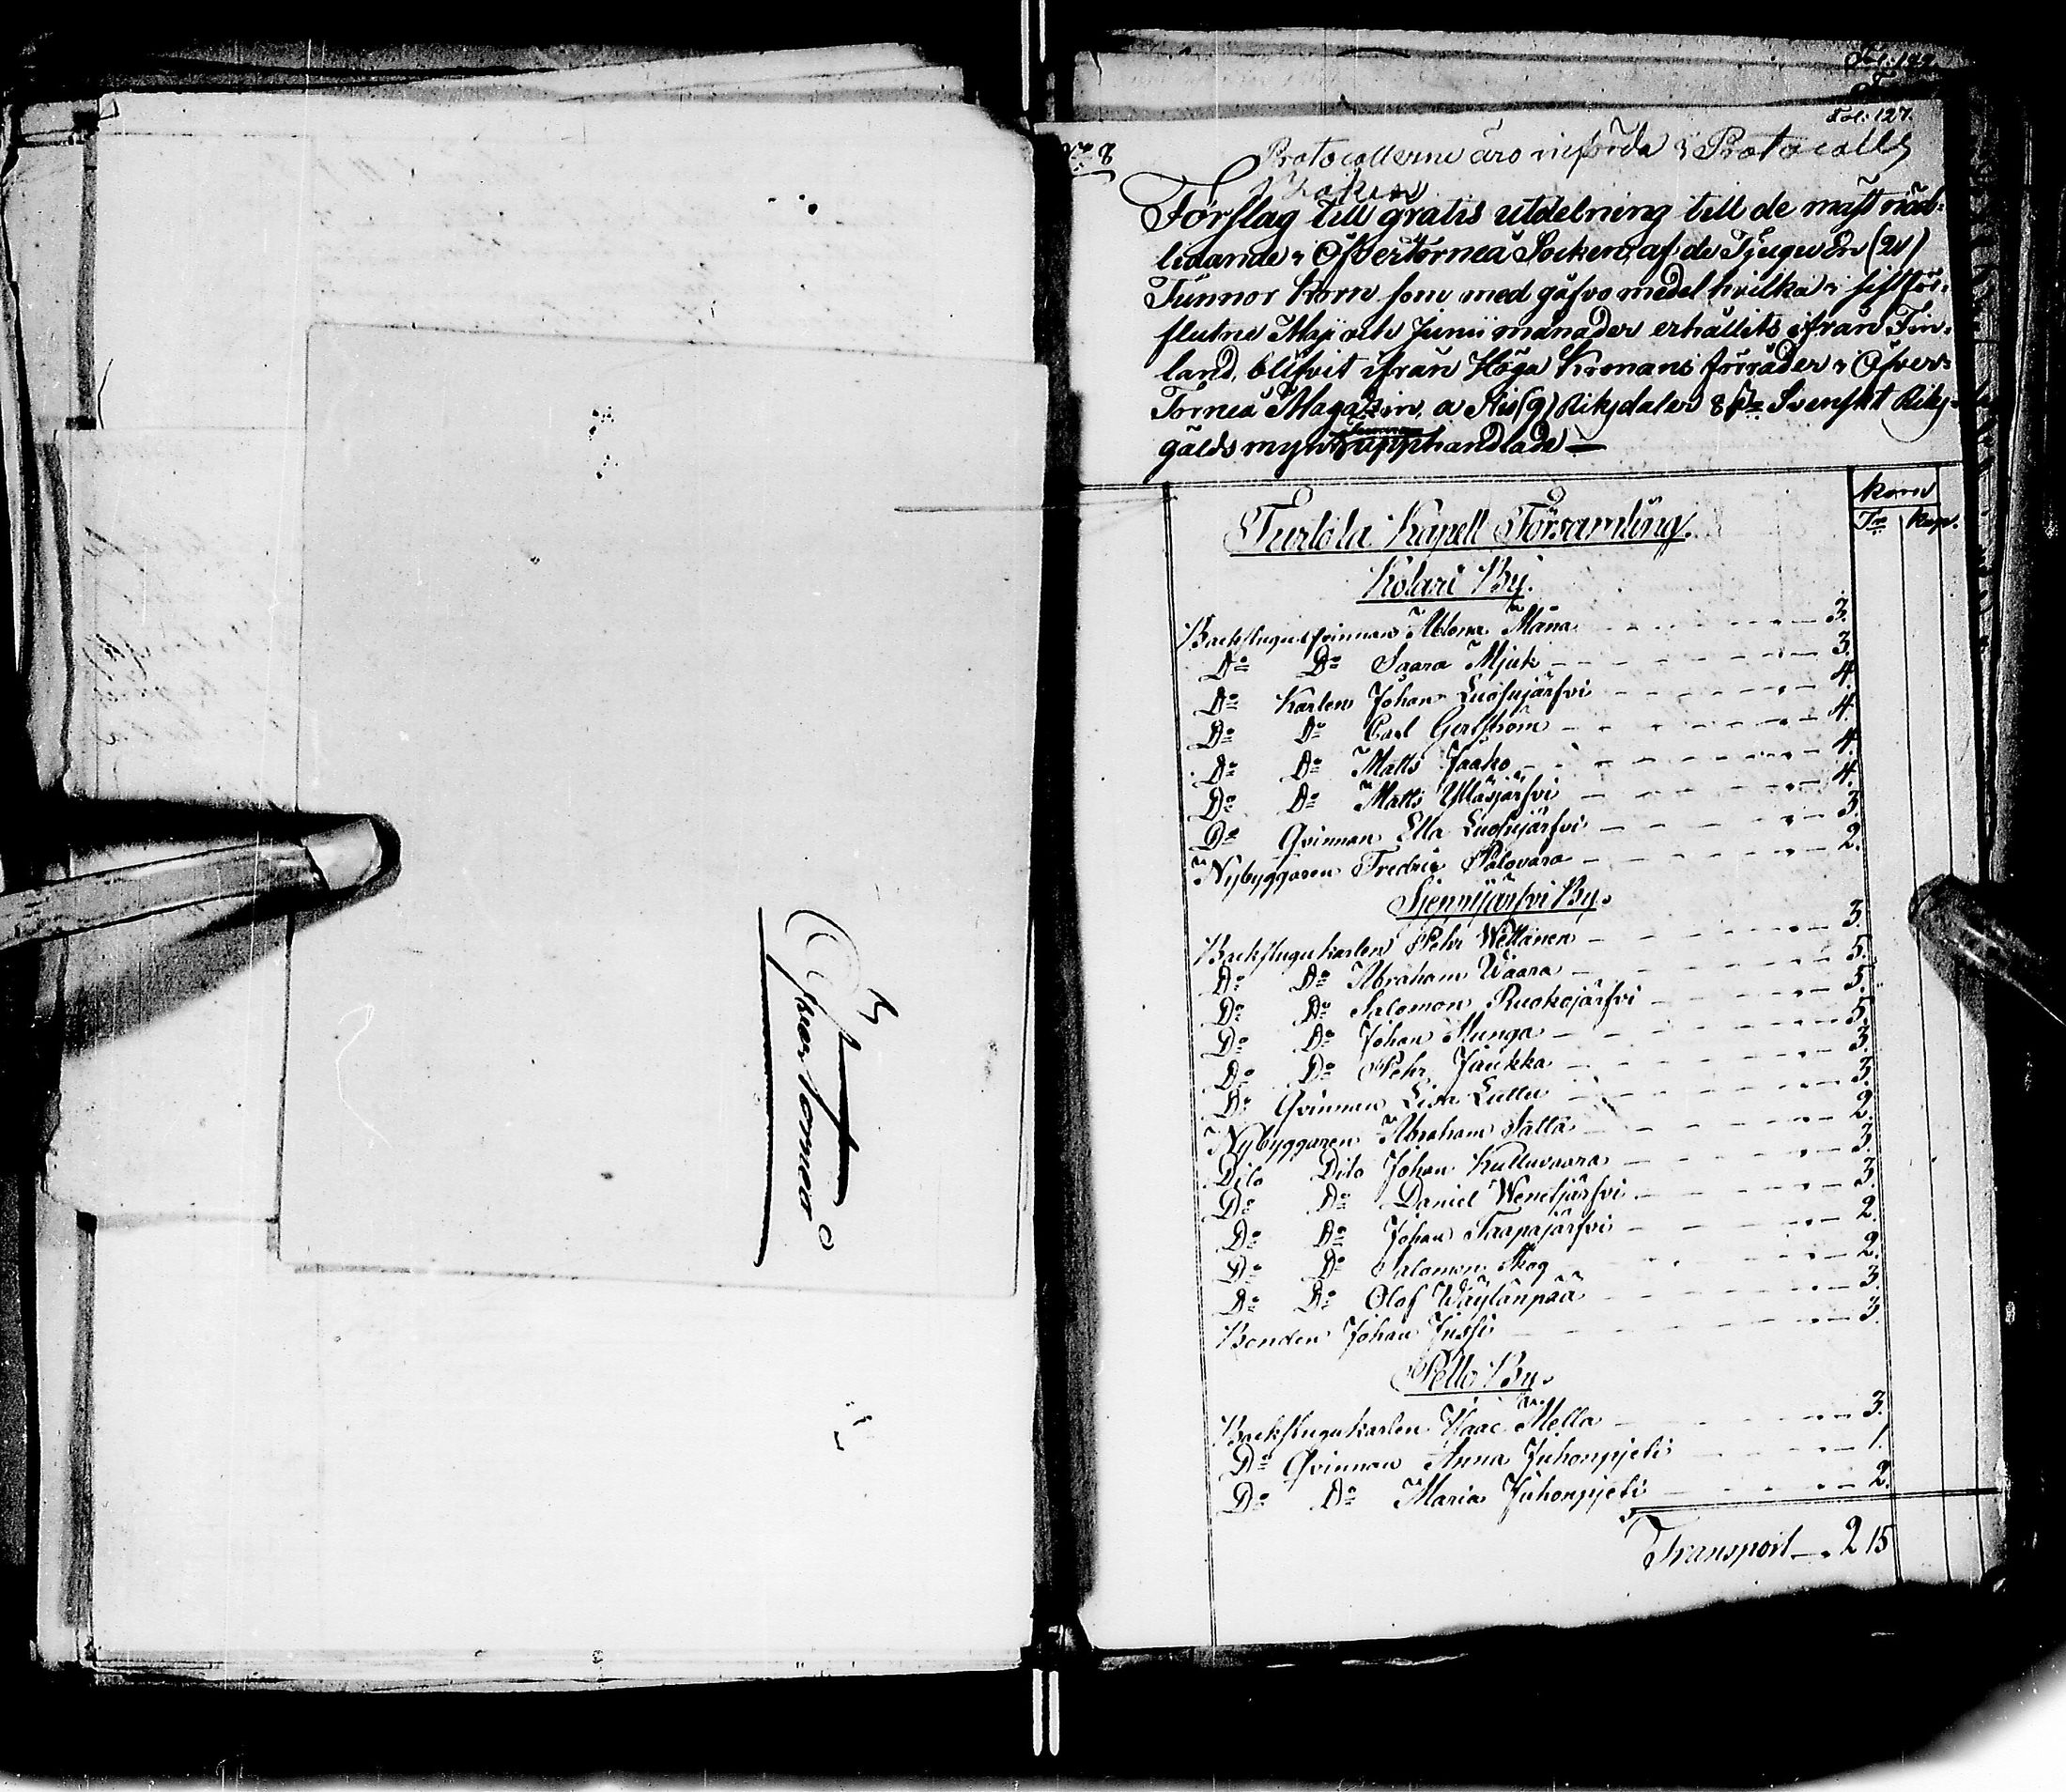 Öfver Torneå
Fol: 127.
N:o 8
Protocollerne äro införda i Protocolls
Boken
Förslag till gratis utdelning till de mäst nöd-
lidande i Öfvertorneå Socken, af de Tjugu En (21)
Tunnor korn som med gåfvo medel hvilka i sistför-
flutne Maji och Junii månader erhållits ifrån Fin-
land, blifvit ifrån Höga Kronans förråder i Öfver-
Torneå Magazin, a Nio (9) Riksdaler 8 s. Svenskt Riks-
gälds mynt Tunnan upphandlade —
Korn
T:r Kap.
Turtola Kapell Församling.
Kolari By.
Backstuguqvinnan Abona Mäna - - - 3.
D:o D:o Saara Mjuk - - - 3.
D:o Karlen Johan Luosujärfvi - - - 4.
D:o D:o Carl Gerlström - - - 4.
D:o D:o Matts Jaako - - - 4.
D:o D:o Matts Ylläsjärfvi - - - 4.
D:o Qvinnan Ella Luosujärfvi - - - 3.
Nybyggaren Fredric Palovara - - - 2.
Sieppijärfvi By.
Backstugukarlen Pehr Wettänen - - - 3.
D:o D:o Abraham Waara - - - 5.
D:o D:o Salomon Ruokojärfvi - - - 5.
D:o D:o Johan Munga - - - 5.
D:o D:o Pehr Jaukka - - - 3.
D:o Qvinnan Lisa Lullu - - - 3.
Nybyggaren Abraham Salla - - - 2.
Dito Dito Johan Kulluvaara - - - 3.
D:o D:o Daniel Wenetjärfvi - - - 3.
D:o D:o Johan Trapajärfvi - - - 2.
D:o D:o Salomon Skog - - - 2.
D:o D:o Olof Wäylänpää - - - 3.
Bonden Johan Jussi - - - 3.
Pello By.
Backstugukarlen Isaac Mella - - - 3.
D:o Qvinnan Anna Juhonpjeti - - - 1.
D:o D:o Maria Juhonpjeti - - - 2.
Transport - 2 15